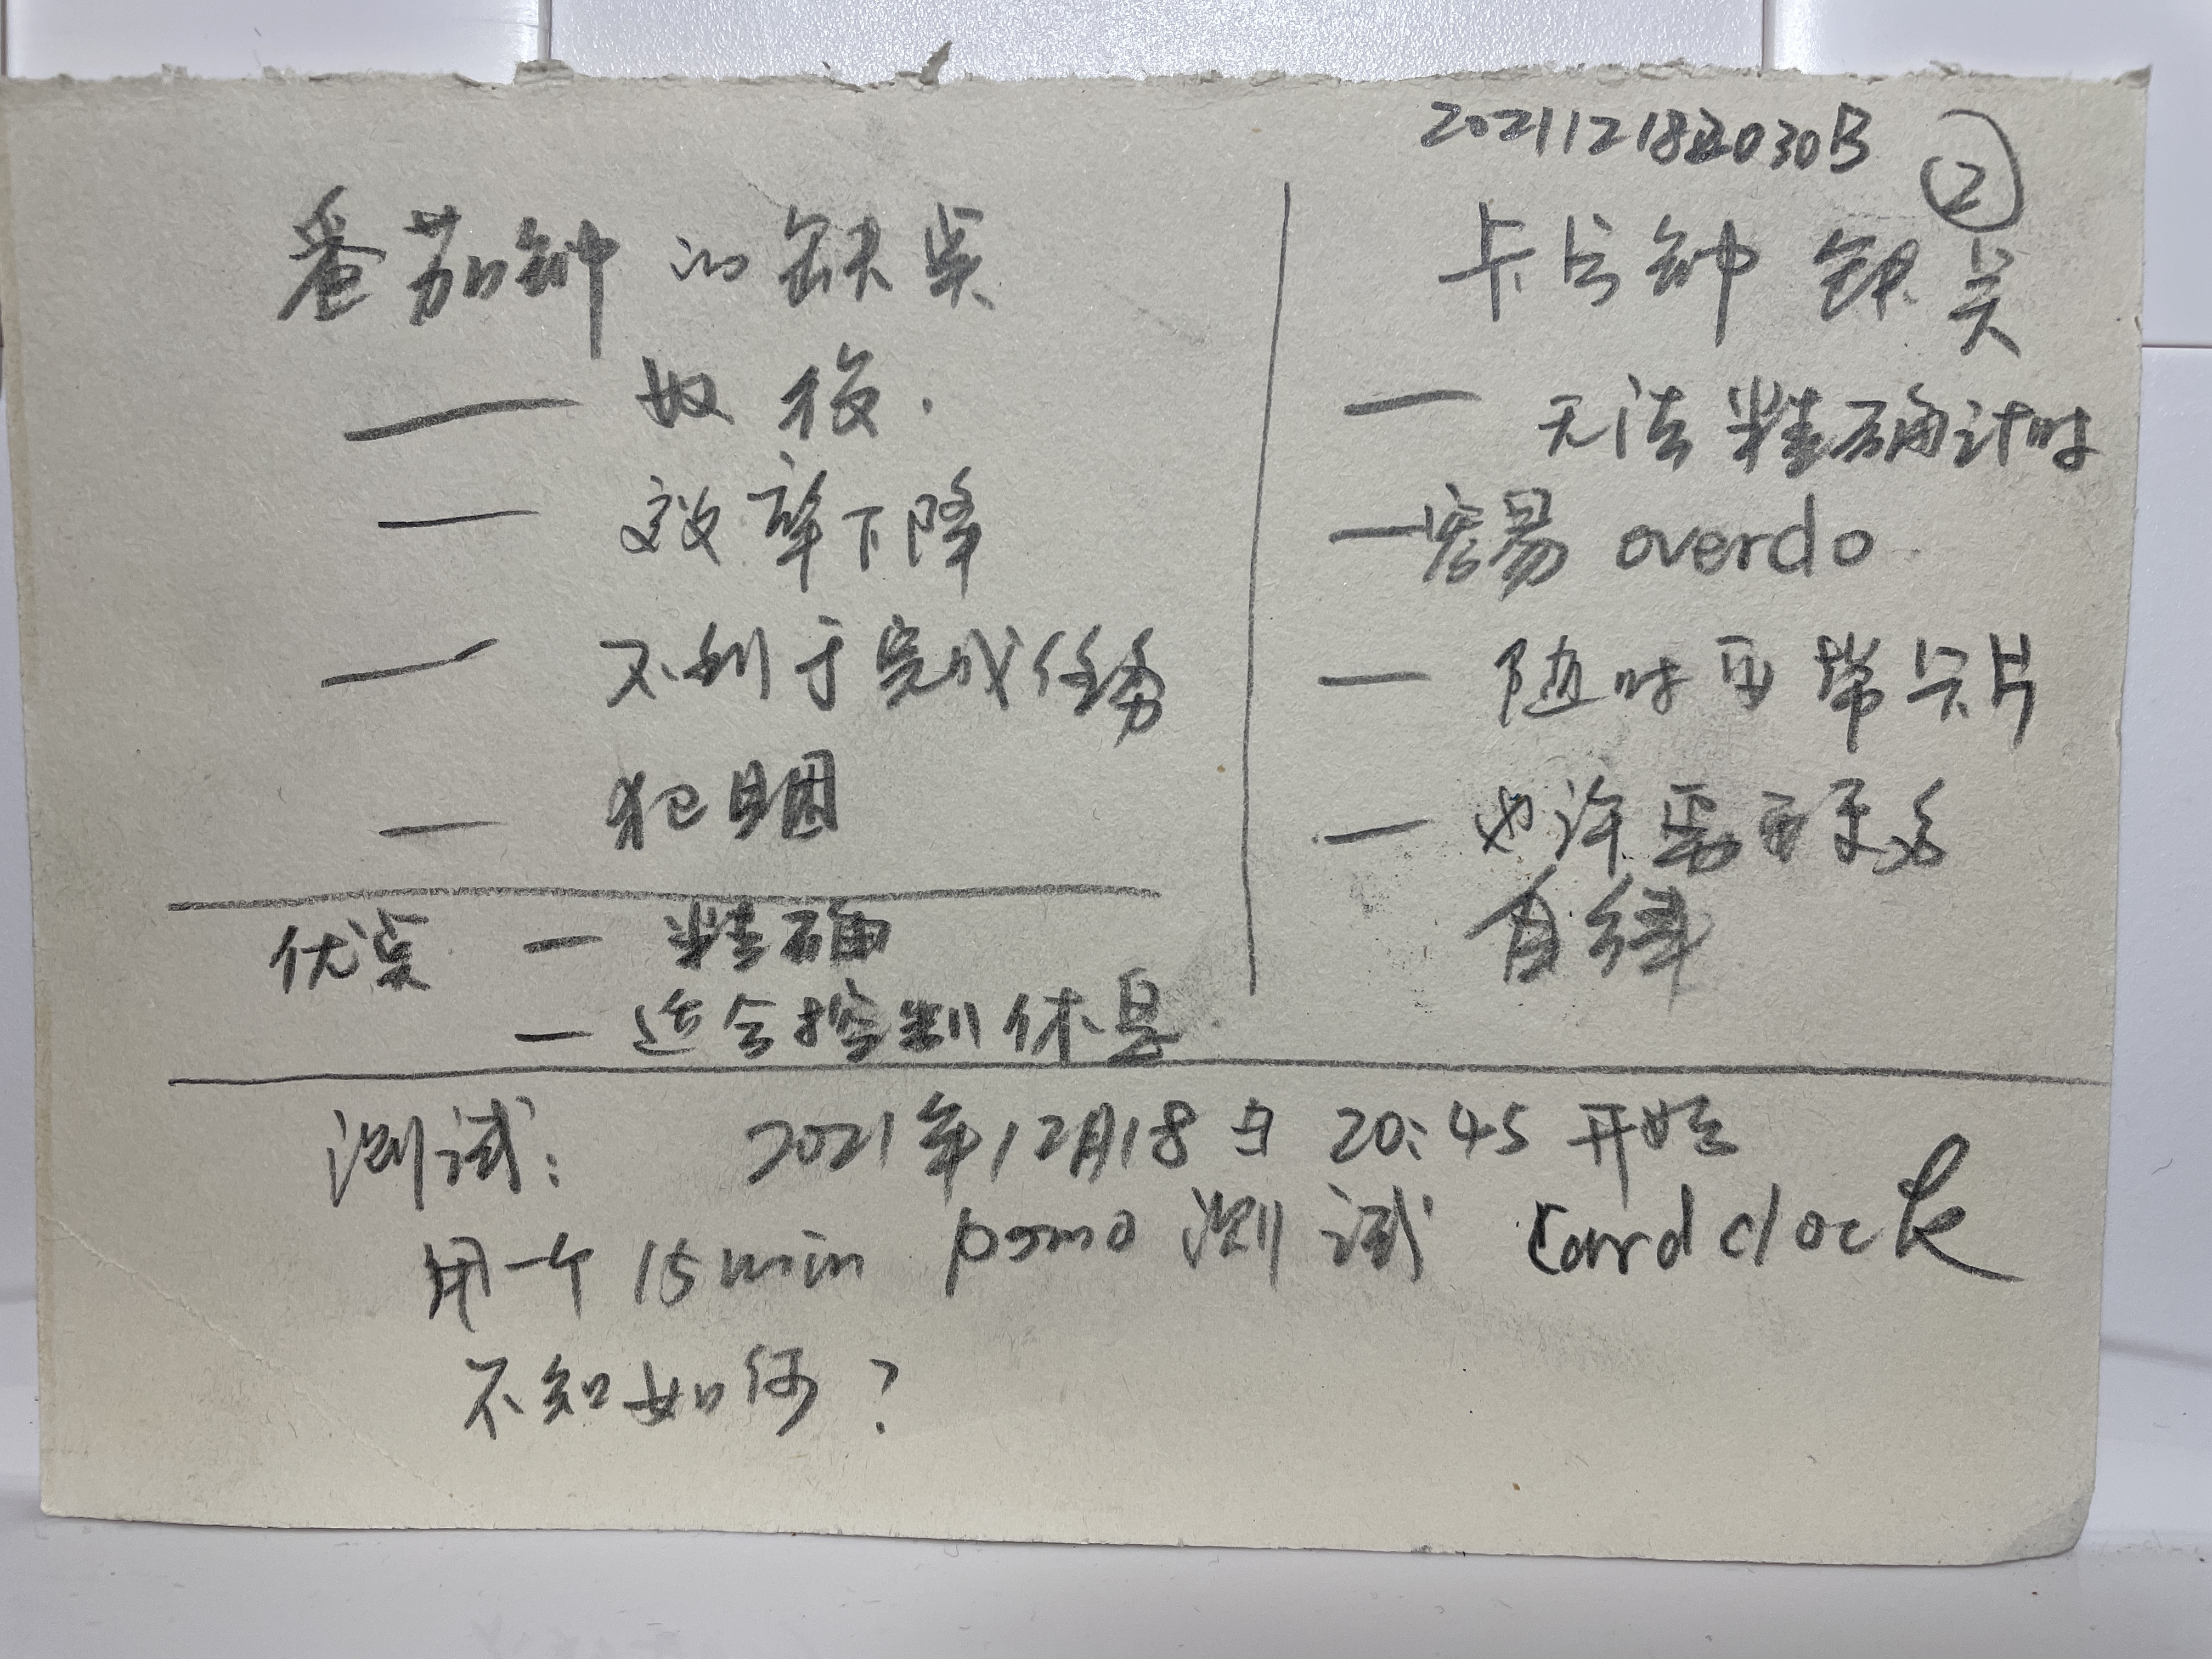 202112182030B ②
番茄钟的缺点
— 奴役.
— 效率下降
— 不利于完成任务
— 犯困
优点 — 精确
— 适合控制休息.
卡片钟 缺点
— 无法精确计时
— 容易 overdo
— 随时要带卡片
— 也许需要更多
自律
测试: 2021年12月18日 20:45 开始
用一个 15min pomo 测试 Card clock
不知如何?